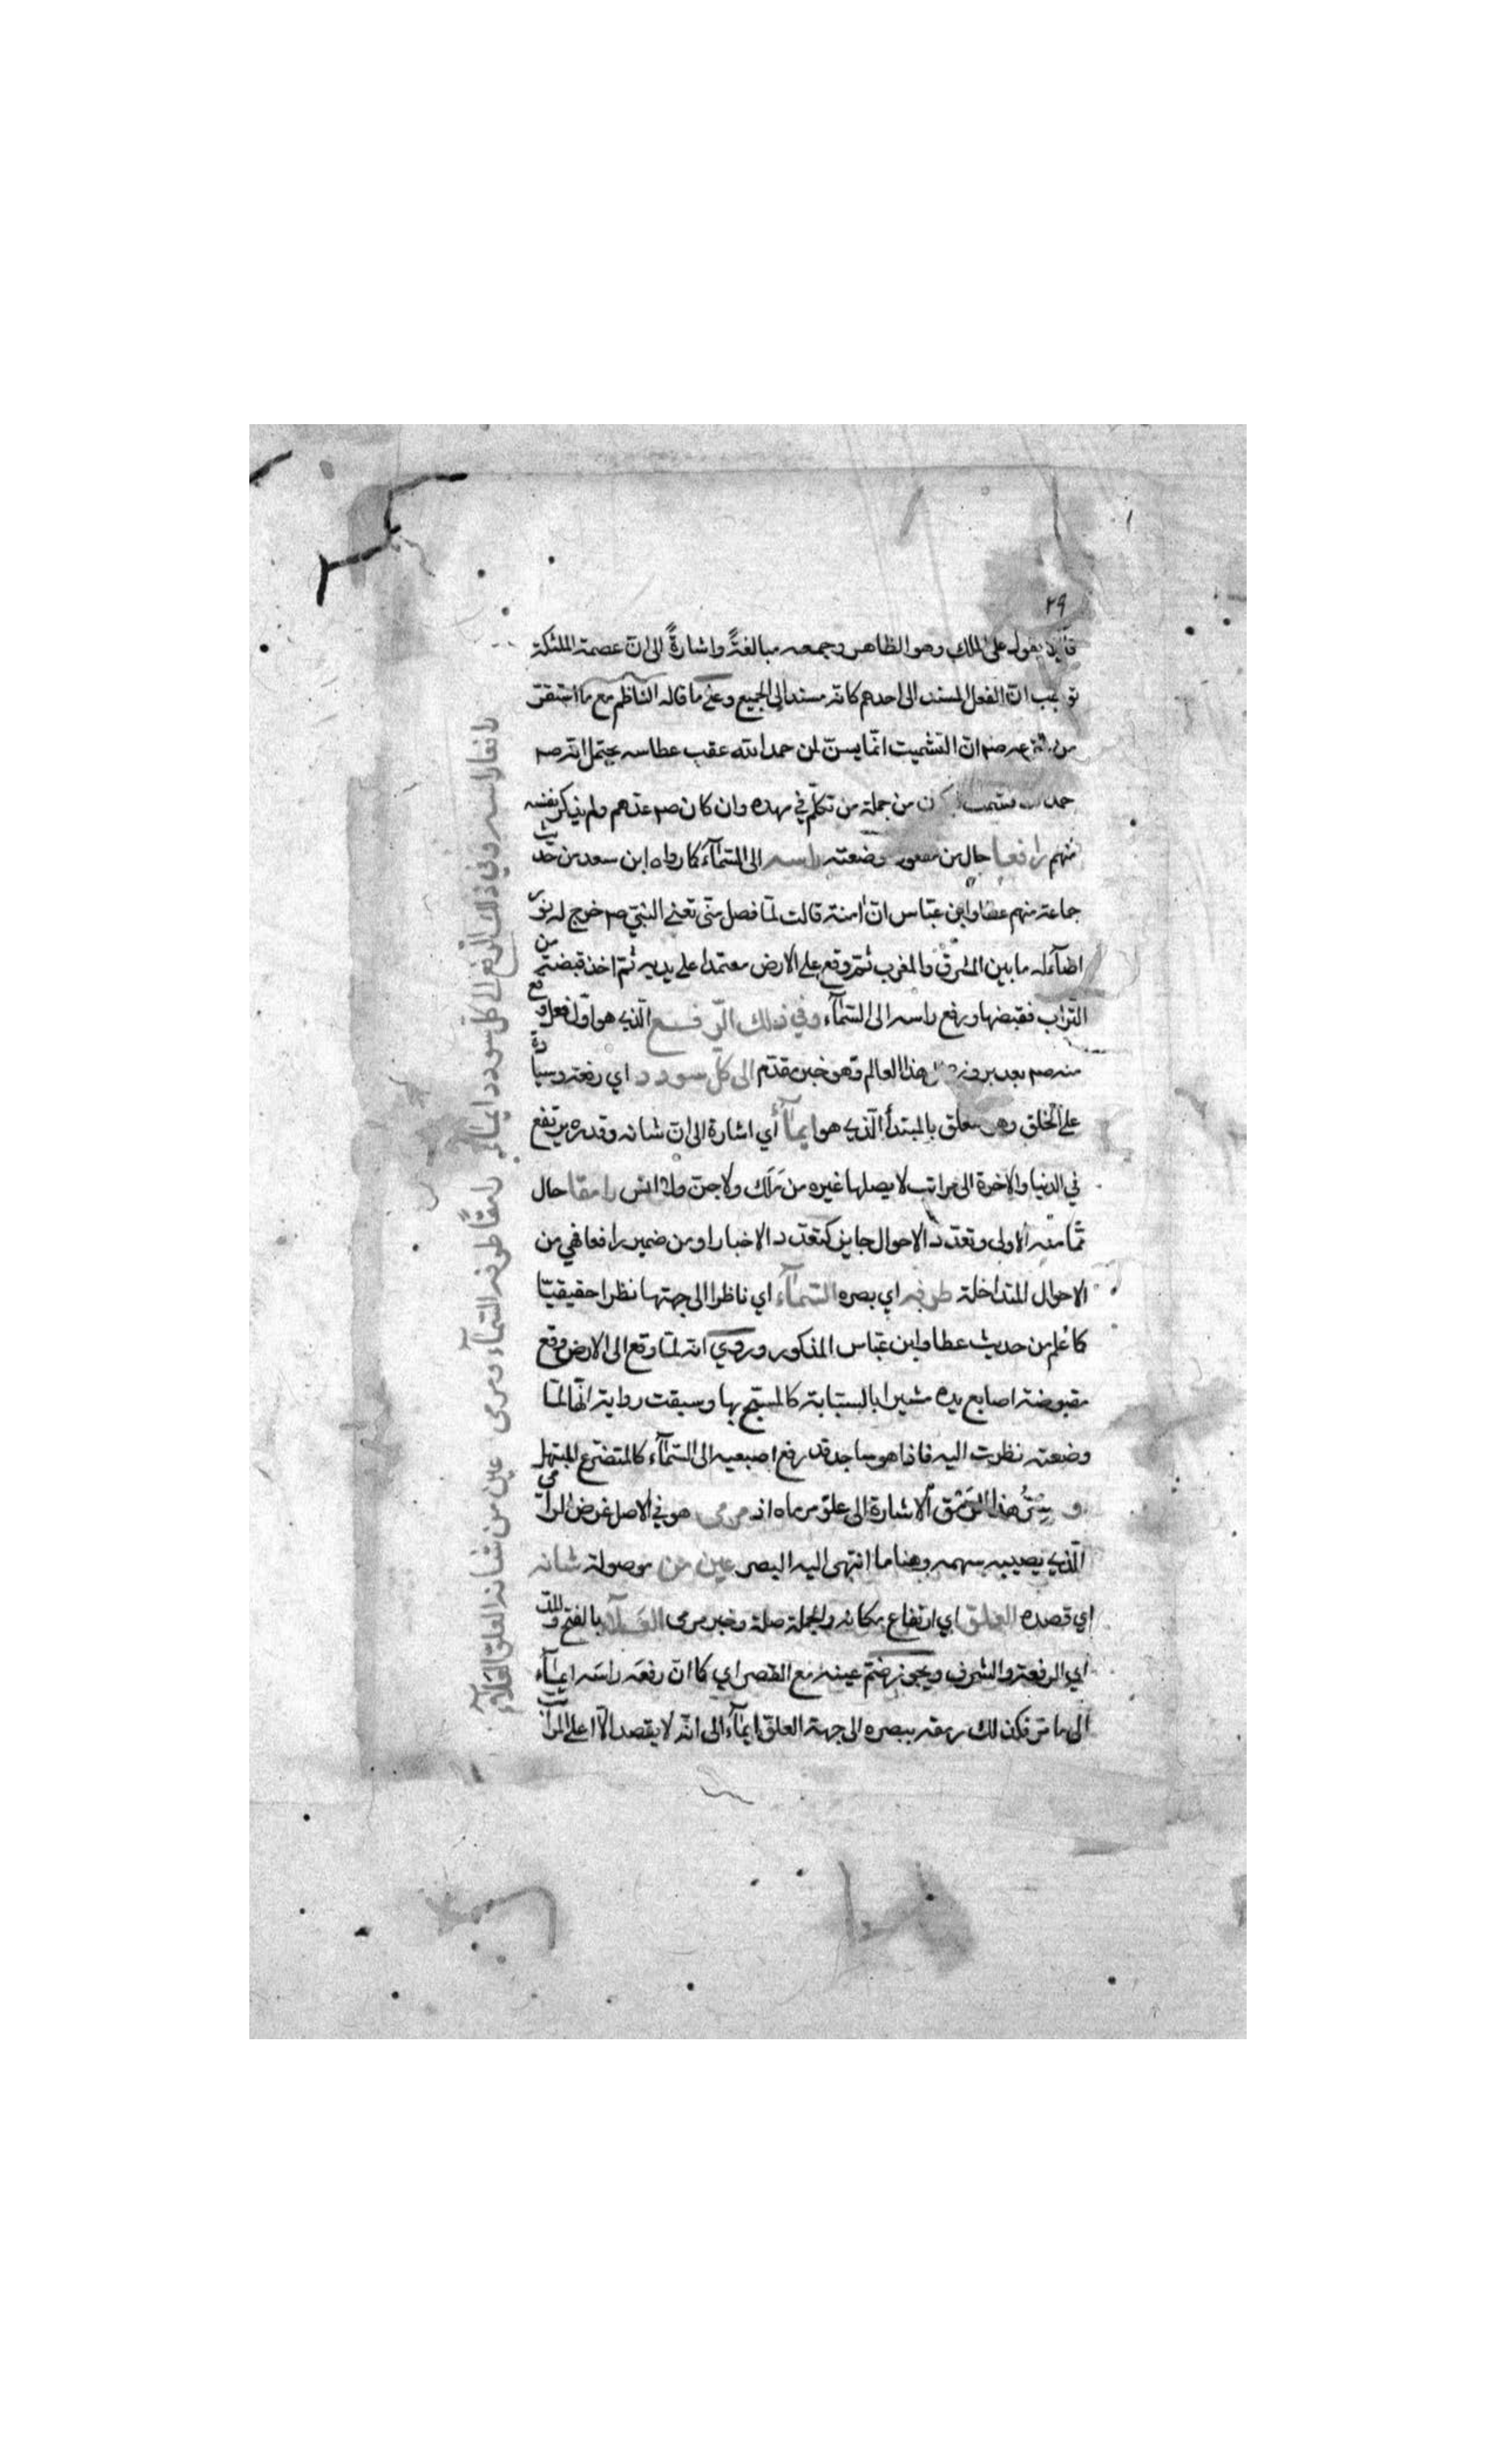 ٢٩
يقول على الملك وهو الظاهر وجمعه مبالغةً واشارةً الى ان عصمة الملئكة
توجب انّ الفعل المسند الى احدهم كانه مسند الى الجميع وعلى ما قاله الناظم مع ما استقر
انّ التشميت انّما يسنّ لمن حمد الله عقب عطاسه يحتمل انه صم
من جملة من تكلّم في مهده وان كان صم عدهم ولم يذكر نفسه
منهم رافعا حال من وضعته راسه الى السّمآء كما رواه ابن سعد من حديث
جماعة منهم عطا وابن عبّاس انّ امنة قالت لمّا فصل منّي تعني النبيّ صم خرج له نور
اضآء له ما بين المشرق والمغرب ثمّ وقع على الارض معتمدا على يديه ثمّ اخذ قبضة من
التراب فقبضها ورفع راسه الى السّمآء وفي ذلك الرّفع الّذي هو اوّل فعل وقع
منه صم بعد بروزه هذا العالم وهو خبر مقدّم الى كلّ سودد اي رفعة وسيادة
على الخلق وهو متعلق بالمبتدأ الّذي هو ايمآأ أي اشارة الى انّ شانه وقدره يرتفع
في الدنيا والاخرة الى مراتب لا يصلها غيره من مَلَك ولا جنّ ولا انس رامقا حال
ممّا منه الاولى وتعدّد الاحوال جايز كتعدّد الاخبار او من ضمير رافعا فهي من
الاحوال المتداخلة طرفه اي بصره السّمآء اي ناظرا الى جهتها نظرا حقيقيّا
كما عُلم من حديث عطا وابن عبّاس المذكور وروي انه لمّا وقع الى الارض وقع
مقبوضة اصابع يده مشيرا بالسبّابة كالمسبّح بها وسبقت رواية انّها لمّا
وضعته نظرت اليه فاذا هو ساجد قد رفع اصبعيه الى السّمآء كالمتضرّع المبتهل
هذا الاشارة الى علوّ مرماه اذ مرمى هو في الاصل غرض الرامي
الّذي يصيبه سهمه وهنا ما انتهى اليه البصر عين من موصولة شانه
اي قصده العلوّ اي ارتفاع مكانه والجملة صلة وخبر مرمى العَلآء بالفتح والمدّ
اي الرفعة والشرف ويجوز ضمّ عينه مع القصر اي كما انّ رفعَه راسَه ايمآء
الى ما مرّ فكذلك رمقه ببصره الى جهة العلوّ ايمآء الى انّه لا يقصد الّا اعلى المراتب
رافعا راسه وفي ذلك الرفع الى كل سودد ايمآء رامقًا طرفه السّمآء ومرمى عين من شانه العلوّ العَلآء